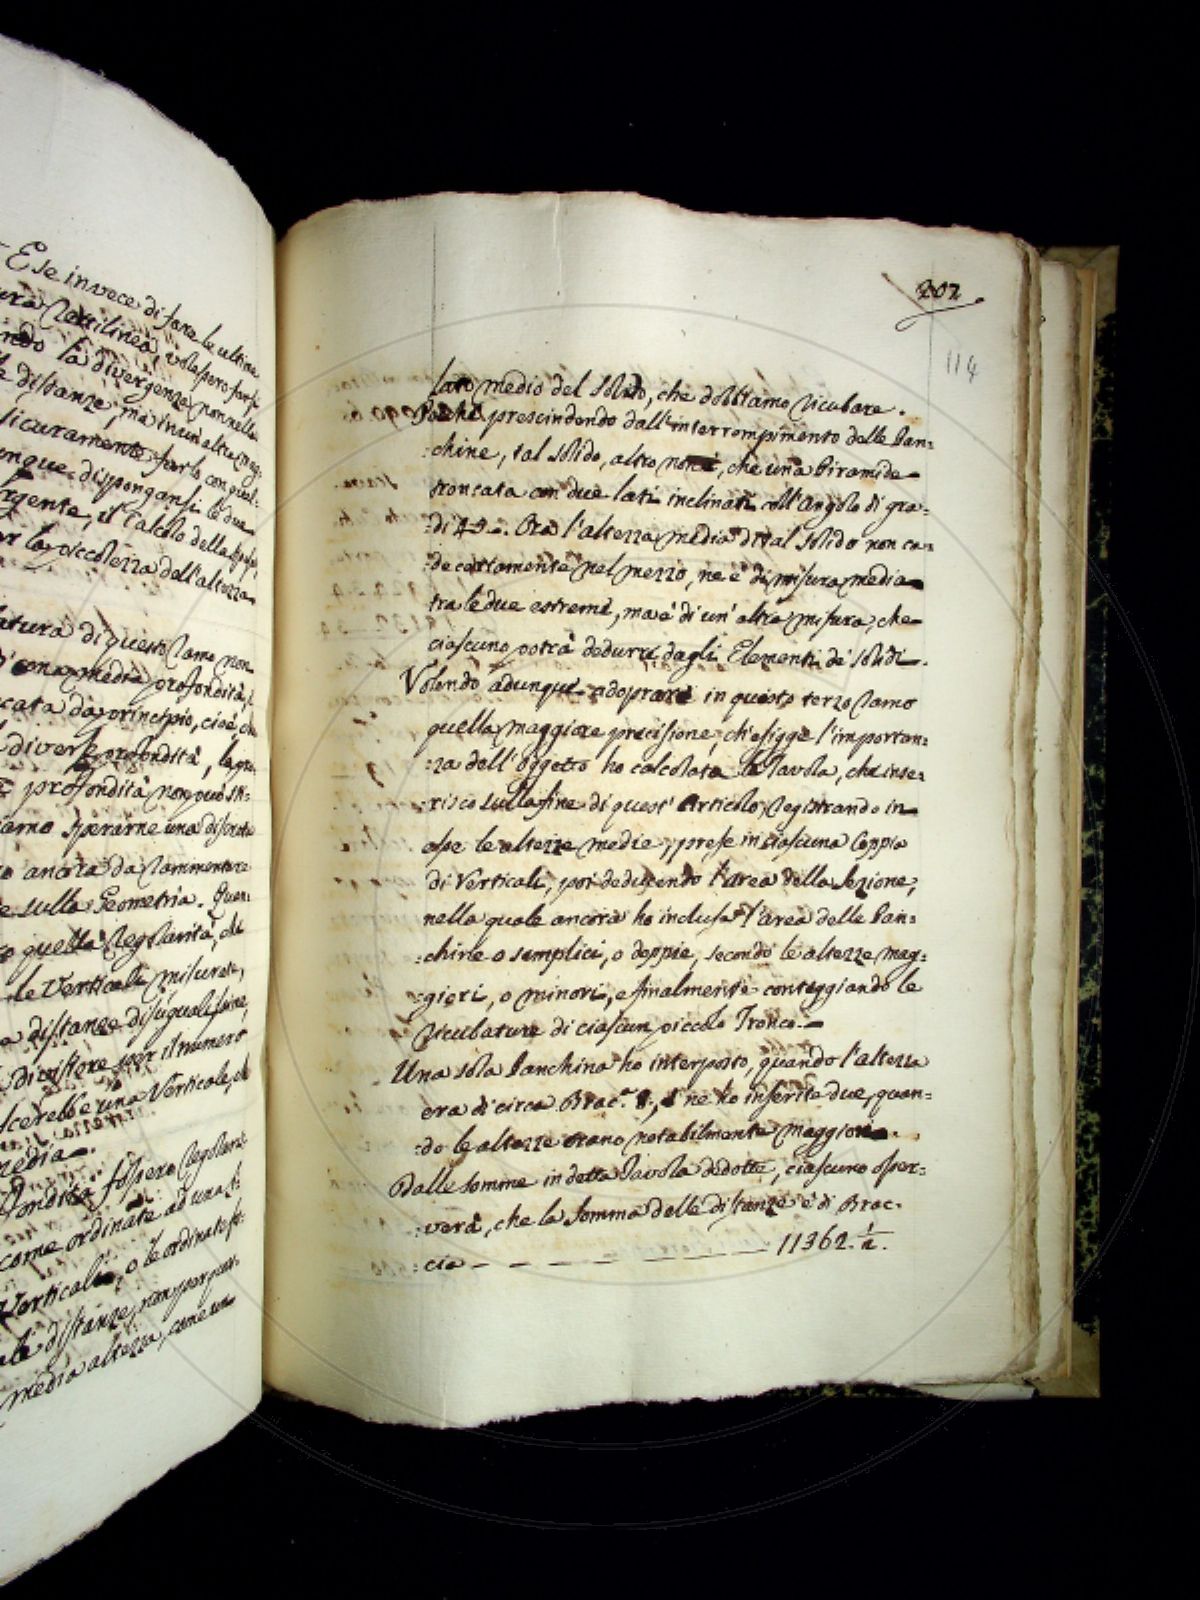 E se invece di fare le ultime
ura Rettilinea, volessero farsi
ndo la divergenza non nelle
e distanze, ma in un'altra mag:
sicuramente farlo con qual:
unque dispongansi le due
rgente, il Calcolo della
er la piccolezza dell'altezza
atura di questo Ramo non
di una media profondità,
cata da principio, cioè, che
diverse profondità, la
profondità non può
iamo sperarne una discreta
ancora da rammentare
e sulla Geometria. Quan:
o quella Regolarità, che
le Verticali misurate,
a distanze disugualissime,
divisore per il numero
scerebbe una Verticale, che
media.
fondità fossero regolari
come ordinate ad una
Verticali, o le ordinate
alle distanze, non per
media altezza, come un
202
114
lato medio del Solido, che dobbiamo Ricubare.
Poichè prescindendo dall'interrompimento delle Ban:
:chine, tal Solido, altro non è, che una Piramide
troncata con due lati inclinati coll'Angolo di gra:
:di 45. Ora l'altezza media di tal Solido non ca:
:de certamente nel mezzo, ne è di misura media
tra le due estreme, ma è di un'altra misura, che
ciascuno potrà dedurre dagli Elementi de' Solidi.
Volendo adunque adoprare in questo terzo Ramo
quella maggiore precisione, ch'esigge l'importan:
:za dell'Oggetto ho calcolata la Tavola, che inse:
:risco sulla fine di quest'Articolo, Registrando in
essa le altezze medie, prese in ciascuna Coppia
di Verticali, poi deducendo l'area della Sezione,
nella quale ancora ho inclusa l'area delle Ban:
:chine o semplici, o doppie, secondo le altezze mag:
:giori, o minori, e finalmente conteggiando le
Ricubature di ciascun piccolo Tronco.
Una sola Banchina ho interposto, quando l'altezza
era di circa Brac.a 8., e ne ho inserite due, quan:
:do le altezze erano notabilmente maggiori.
Dalle Somme in detta Tavola dedotte, ciascuno osser:
:verà, che la Somma delle distanze è di Brac:
:cia - - - - - - 11362. 1/2.